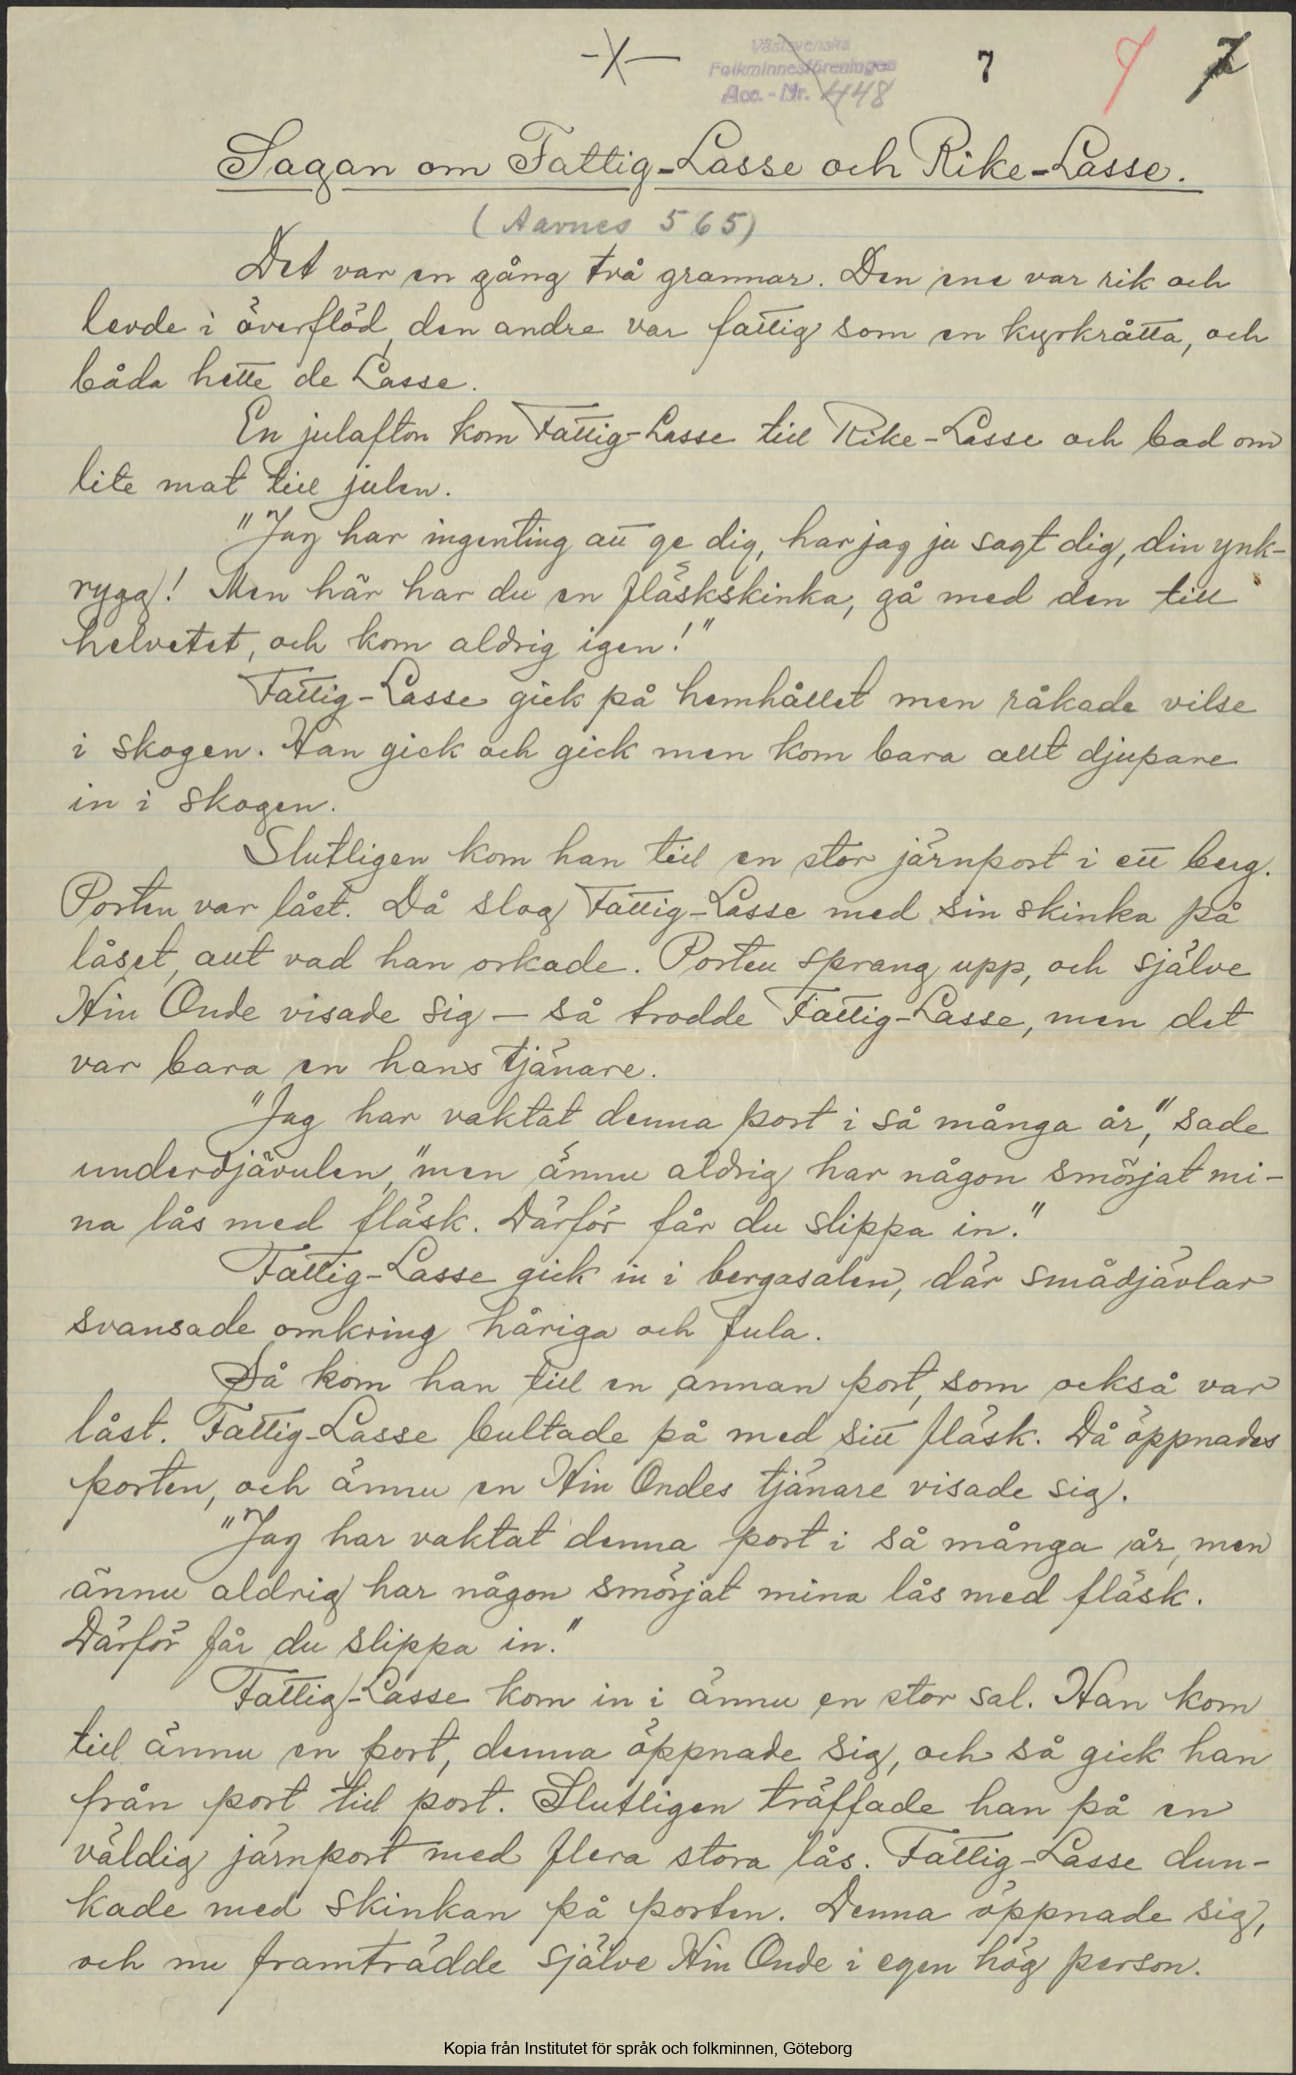 -X-
Västsvenska
Folkminnesföreningen
Acc. - Nr. 448
7 7 7
Sagan om Fattig-Lasse och Rike-Lasse.
(Aarnes 565)
Det var en gång två grannar. Den ene var rik och
levde i överflöd, den andre var fattig som en kyrkråtta, och
båda hette de Lasse.
En julafton kom Fattig-Lasse till Rike-Lasse och bad om
lite mat till julen.
"Jag har ingenting att ge dig, har jag ju sagt dig, din ynk-
rygg! Men här har du en fläskskinka, gå med den till
helvetet, och kom aldrig igen!"
Fattig-Lasse gick på hemhållet men råkade vilse
i skogen. Han gick och gick men kom bara allt djupare
in i skogen.
Slutligen kom han till en stor järnport i ett berg.
Porten var låst. Då slog Fattig-Lasse med sin skinka på
låset, allt vad han orkade. Porten sprang upp, och själve
Hin Onde visade sig – så trodde Fattig-Lasse, men det
var bara en hans tjänare.
"Jag har vaktat denna port i så många år," sade
underdjävulen, "men ännu aldrig har någon smörjat mi-
na lås med fläsk. Därför får du slippa in."
Fattig-Lasse gick in i bergasalen, där smådjävlar
svansade omkring håriga och fula.
Så kom han till en annan port, som också var
låst. Fattig-Lasse bultade på med sitt fläsk. Då öppnades
porten, och ännu en Hin Ondes tjänare visade sig.
"Jag har vaktat denna port i så många år, men
ännu aldrig har någon smörjat mina lås med fläsk.
Därför får du slippa in."
Fattig-Lasse kom in i ännu en stor sal. Han kom
till ännu en port, denna öppnade sig, och så gick han
från port till port. Slutligen träffade han på en
väldig järnport med flera stora lås. Fattig-Lasse dun-
kade med skinkan på porten. Denna öppnade sig,
och nu framträdde själve Hin Onde i egen hög person.
Kopia från Institutet för språk och folkminnen, Göteborg